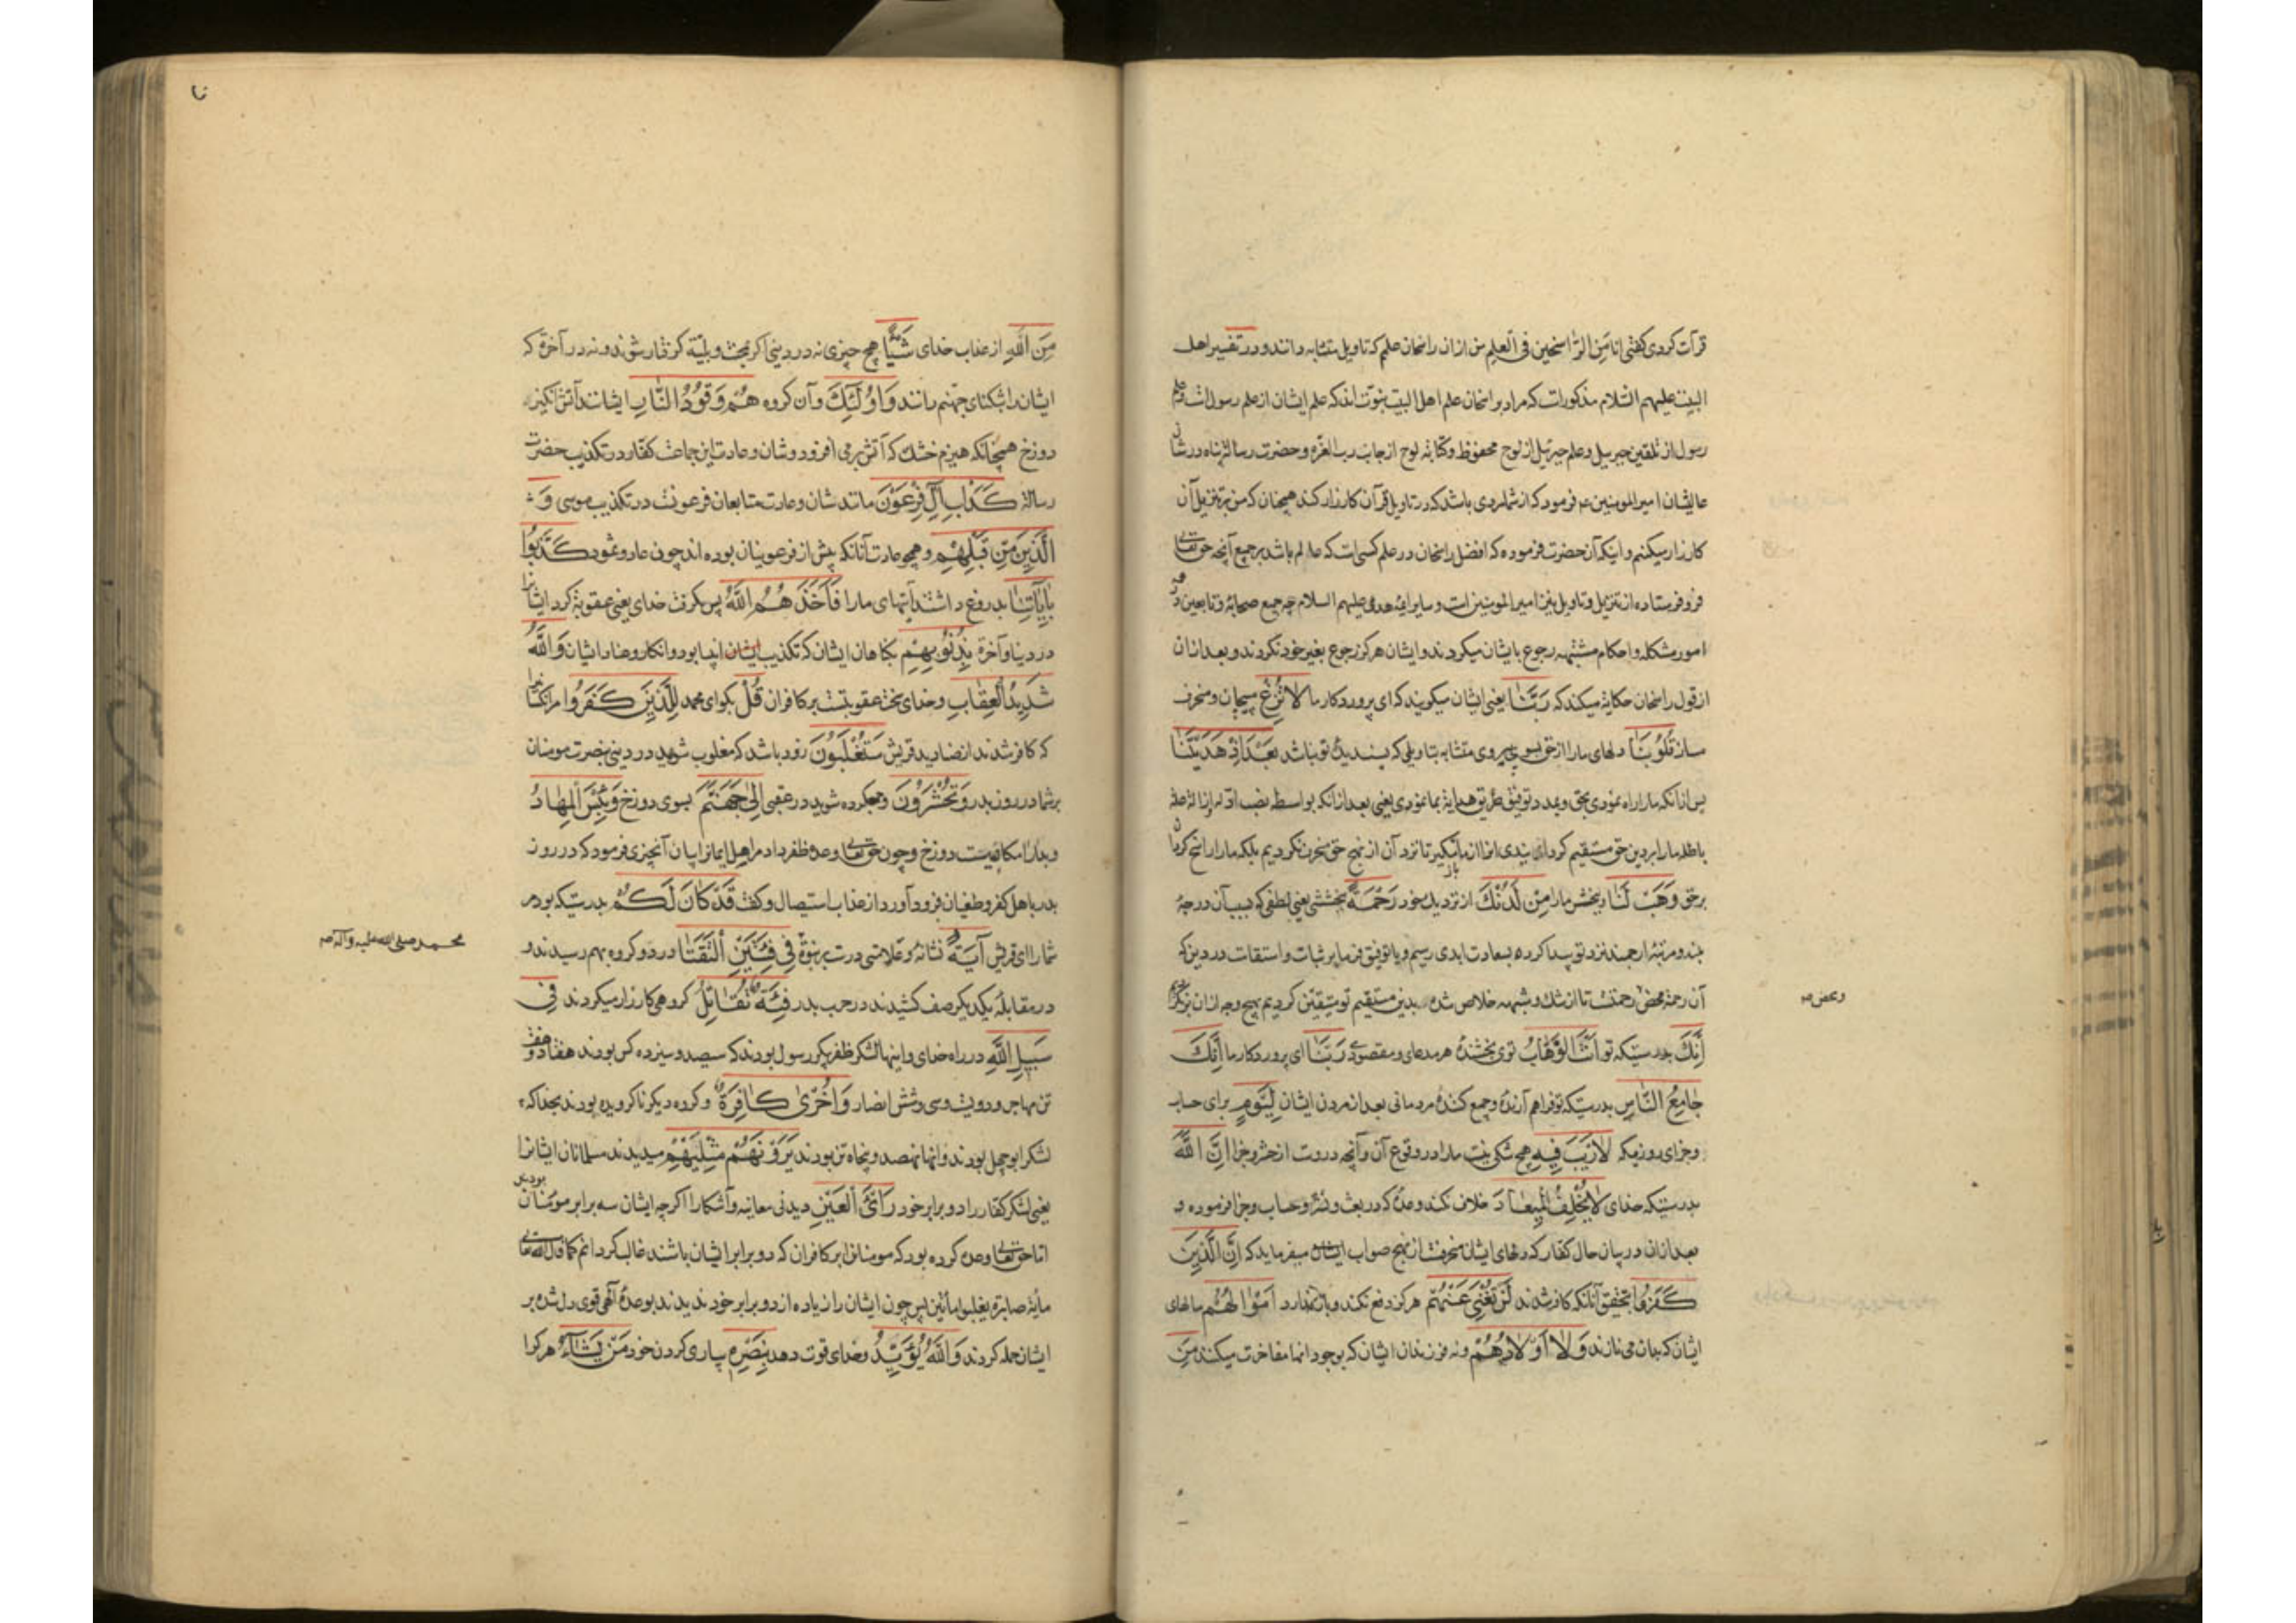 قرآت کردی کفتی انا مِن الرّاسخین فی العلم من ازان راسخان علم که تاویل متشابه دانند و در تفسیر اهل
البیت علیهم السّلام مذکورات که مراد براسخان علم اهل البیت نبوّت اند که علم ایشان از علم رسول است و علم
رسول از تلقین جبریل و علم جبرئیل از لوح محفوظ و کتابه لوح از جانب رب العزّه و حضرت رسالة پناه در شان
عالیشان امیر المومنین ع فرمود که از شما مردی باشد که در تاویل قرآن کارزار کند همچنان که من بر تنزیل آن
کارزار میکنم و اینکه آن حضرت فرموده که افضل راسخان در علم کسی است که عالم باشد بر جمیع آنچه حق تعالی
فرو فرستاده از تنزیل و تاویل نیز امیر المومنین است و سایر ایمّه هدی علیهم السلام چه جمیع صحابه و تابعین در
امور مشکله و احکام مشتبهه رجوع بایشان میکردند و ایشان هرکز رجوع بغیر خود نکردند و بعد ازان
از قول راسخان حکایة میکند که رَبَّنَا یعنی ایشان میکویند که ای پروردکار ما لَا تُزِغْ مپیچان و منحرف
مساز قُلُوبَنَا دلهای ما را از حق بسوی پیروی متشابه بتاویلی که پسندیدهٔ تو باشد بَعْدَ اِذْ هَدَیْتَنَا
پس از آنکه ما را راه نمودی بحق و بمدد توفیق طریق هدایة بما نمودی یعنی بعد ازانکه بواسطه نصب ادّله و ازالهٔ
باطله ما را بر دین حق مستقیم کردا
بر حق وَهَبْ لَنَا و ببخش ما را مِنْ لَدُنْكَ از نزدیك خود رَحْمَةً بخششی یعنی لطفی که بسبب آن درجهٔ
بلند و مرتبهٔ ارجمند نزد تو پیدا کرده بسعادت ابدی رسیم و یا توفیق فرما بر ثبات و استقامت در دین که
آن رحمة محض رحمتست تا از شك و شبهه خلاص شده بدین مستقیم تو متیقّن کردیم بهیچ وجه ازان برنکردیم
و بعض صح
اِنَّكَ بدرستیکه تو اَنْتَ الْوَهَّابُ توی بخشندهٔ هر مدعای و مقصودی رَبَّنَا ای پروردکار ما اِنَّكَ
جَامِعُ النَّاسِ بدرستیکه تو فراهم آرندهٔ و جمع کنندهٔ مردمانی بعد از مردن ایشان لِیَوْمٍ برای حساب
و جزای روزی که لَارَیْبَ فِیهِ هیچ شکی نیست ما را در وقوع آن و آنچه دروست از حشر و جزا اِنَّ اللّٰهَ
بدرستیکه خدای لَا یُخْلِفُ الْمِیعَادَ خلاف نکند وعدهٔ که در بعث و نشر و حساب و جزا فرموده و
بعد ازان در بیان حال کفار که دلهای ایشان منحرفست از نهج صواب ایشان میفرماید که اِنَّ الَّذِینَ
کَفَرُوا بتحقیق آنانکه کافر شدند لَنْ تُغْنِیَ عَنْهُمْ هرکز دفع نکند و باز ندارد اَمْوَالُهُمْ مالهای
ایشان که بدان می نازند وَلَا اَوْلَادُهُمْ و نه فرزندان ایشان که بوجود انها مفاخرت میکنند مِنَ
تا
مِنَ اللّٰهِ از عذاب خدای شَیْئًا هیچ چیزی نه در دنیی اکر بمحنت و بلیّة کرفتار شوند و نه در آخرة که
ایشان را بشکنای جهنّم رانند وَاُولٰئِكَ و آن کروه هُمْ وَقُودُ النَّارِ ایشانند آتش انکیز
دوزخ همچنانکه هیزم خشك که آتش برمی افروزد و شان و عادت این جماعت کفّار در تکذیب حضرت
رسالة کَدَأْبِ اٰلِ فِرْعَوْنَ مانند شان و عادت متابعان فرعونست در تکذیب موسی وَ
الَّذِینَ مِنْ قَبْلِهِمْ و همچو عادت آنانکه پیش از فرعونیان بوده اند چون عاد و ثمود کَذَّبُوا
بِاٰیَاتِنَا بدروغ داشتند آیتهای ما را فَاَخَذَهُمُ اللّٰهُ پس بکرفت خدای یعنی عقوبة کرد ایشانرا
در دنیا و آخرة بِذُنُوبِهِمْ بکناهان ایشان که تکذیب ایشان انبیا بود و انکار و عناد ایشان وَاللّٰهُ
شَدِیدُ الْعِقَابِ و خدای سخت عقوبتست بر کافران قُلْ بکو ای محمد لِلَّذِینَ کَفَرُوا مر آنکسانرا
که کافر شدند از صنادید قریش سَتُغْلَبُونَ زود باشد که مغلوب شوید در دنیی بنصرت مومنان
بر شما در روز بدر وَتُحْشَرُونَ و جمع کرده شوید در عقبی اِلٰی جَهَنَّمَ بسوی دوزخ وَبِئْسَ الْمِهَادُ
و بد آرامکاهیست دوزخ و چون حق تعالی وعدهٔ ظفر داد مر اهل ایمانرا بیان آنچیزی فرمود که در روز
بدر باهل کفر و طغیان فرود آورد از عذاب استیصال و کفت قَدْ کَانَ لَکُمْ بدرستیکه بود مر
شما را ای قریش اٰیَةٌ نشانهٔ و علامتی درست بر نبوّة فِی فِئَتَیْنِ الْتَقَتَا در دو کروه بهم رسیدند و
محمد صلی الله علیه و آله صح
در مقابلهٔ یکدیکر صف کشیدند در حرب بدر فِئَةٌ تُقَاتِلُ کروهی کارزار میکردند فِی
سَبِیلِ اللّٰهِ در راه خدای و اینها لشکر ظفر پیکر رسول بودند که سیصد و سیزده کس بودند هفتاد و هفت
تن مهاجر و دویست و سی و شش انصار وَاُخْرٰی کَافِرَةٌ و کروه دیکر ناکرویده بودند بخدا که
لشکر ابو جهل بودند و انها نهصد و پنجاه تن بودند یَرَوْنَهُمْ مِثْلَیْهِمْ میدیدند مسلمانان ایشانرا
یعنی لشکر کفّار را دو برابر خود رَاْیَ الْعَیْنِ دیدنی معاینه و آشکارا اکرچه ایشان سه برابر مومنان بودند
امّا حق تعالی وعده کرده بود که مومنانرا بر کافران که دو برابر ایشان باشند غالب کردانم کما قال الله تعالی
مأیة صابرة یغلبوا مأتین پس چون ایشان را زیاده از دو برابر خود ندیدند بوعدهٔ آلهی قوی دل شده بر
ایشان حمله کردند وَاللّٰهُ یُؤَیِّدُ و خدای قوت دهد بِنَصْرِهِ بیاری کردن خود مَنْ یَشَاءُ هر کرا